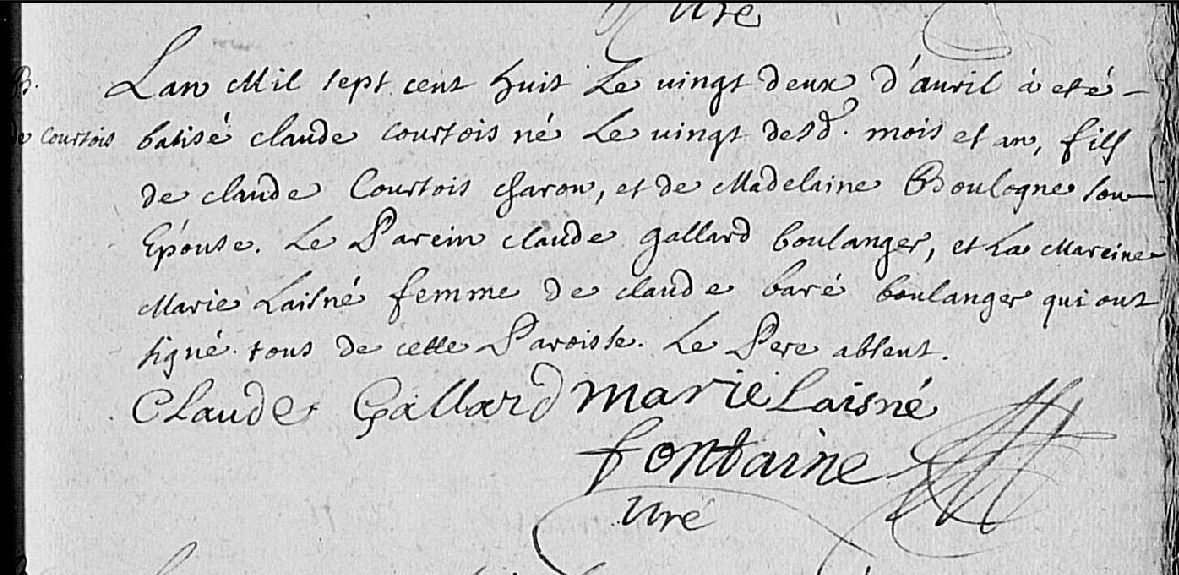 Curé
B. Lan Mil sept cent huit Le vingt deux d'avril à eté
de Courtois batisé claude Courtois né Le vingt desd. mois et an, fils
de claude Courtois charon, et de Madelaine Boulogne son
Epouse. Le Parein claude gallard boulanger, et La Mareine
Marie Laisné femme de claude baré boulanger qui ont
signé tous de cette Paroisse. Le Pere absent.
Claude Gallard marie Laisné
fontaine
Curé